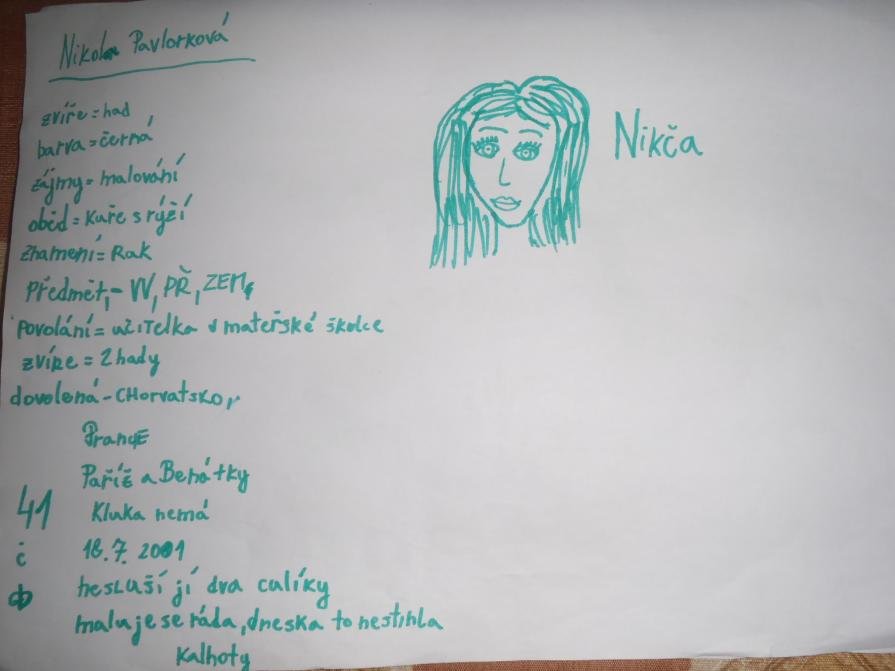 Nikola Pavlorková
zvíře = had
barva = černá
zájmy = malování
oběd = kuře s rýží
znamení = Rak
Předmět, - VV, PŘ, ZEM,
povolání = učitelka v mateřské školce
zvíře = 2 hady
dovolená - CHorvatsko,
Francie
Paříž a Benátky
41 Kluka nemá
č 18.7. 2001
nesluší jí dva culíky
maluje se ráda, dneska to nestihla
Kalhoty
Nikča